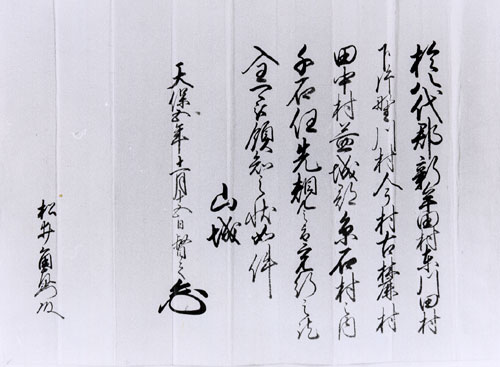 於八代郡新牟田村東川田村
下片野川村今村古麓村
田中村益城郡糸石村之内
千石任先規之旨宛行之訖
全可領知之状如件
山城
天保五年十一月十五日督之
松井角馬殿